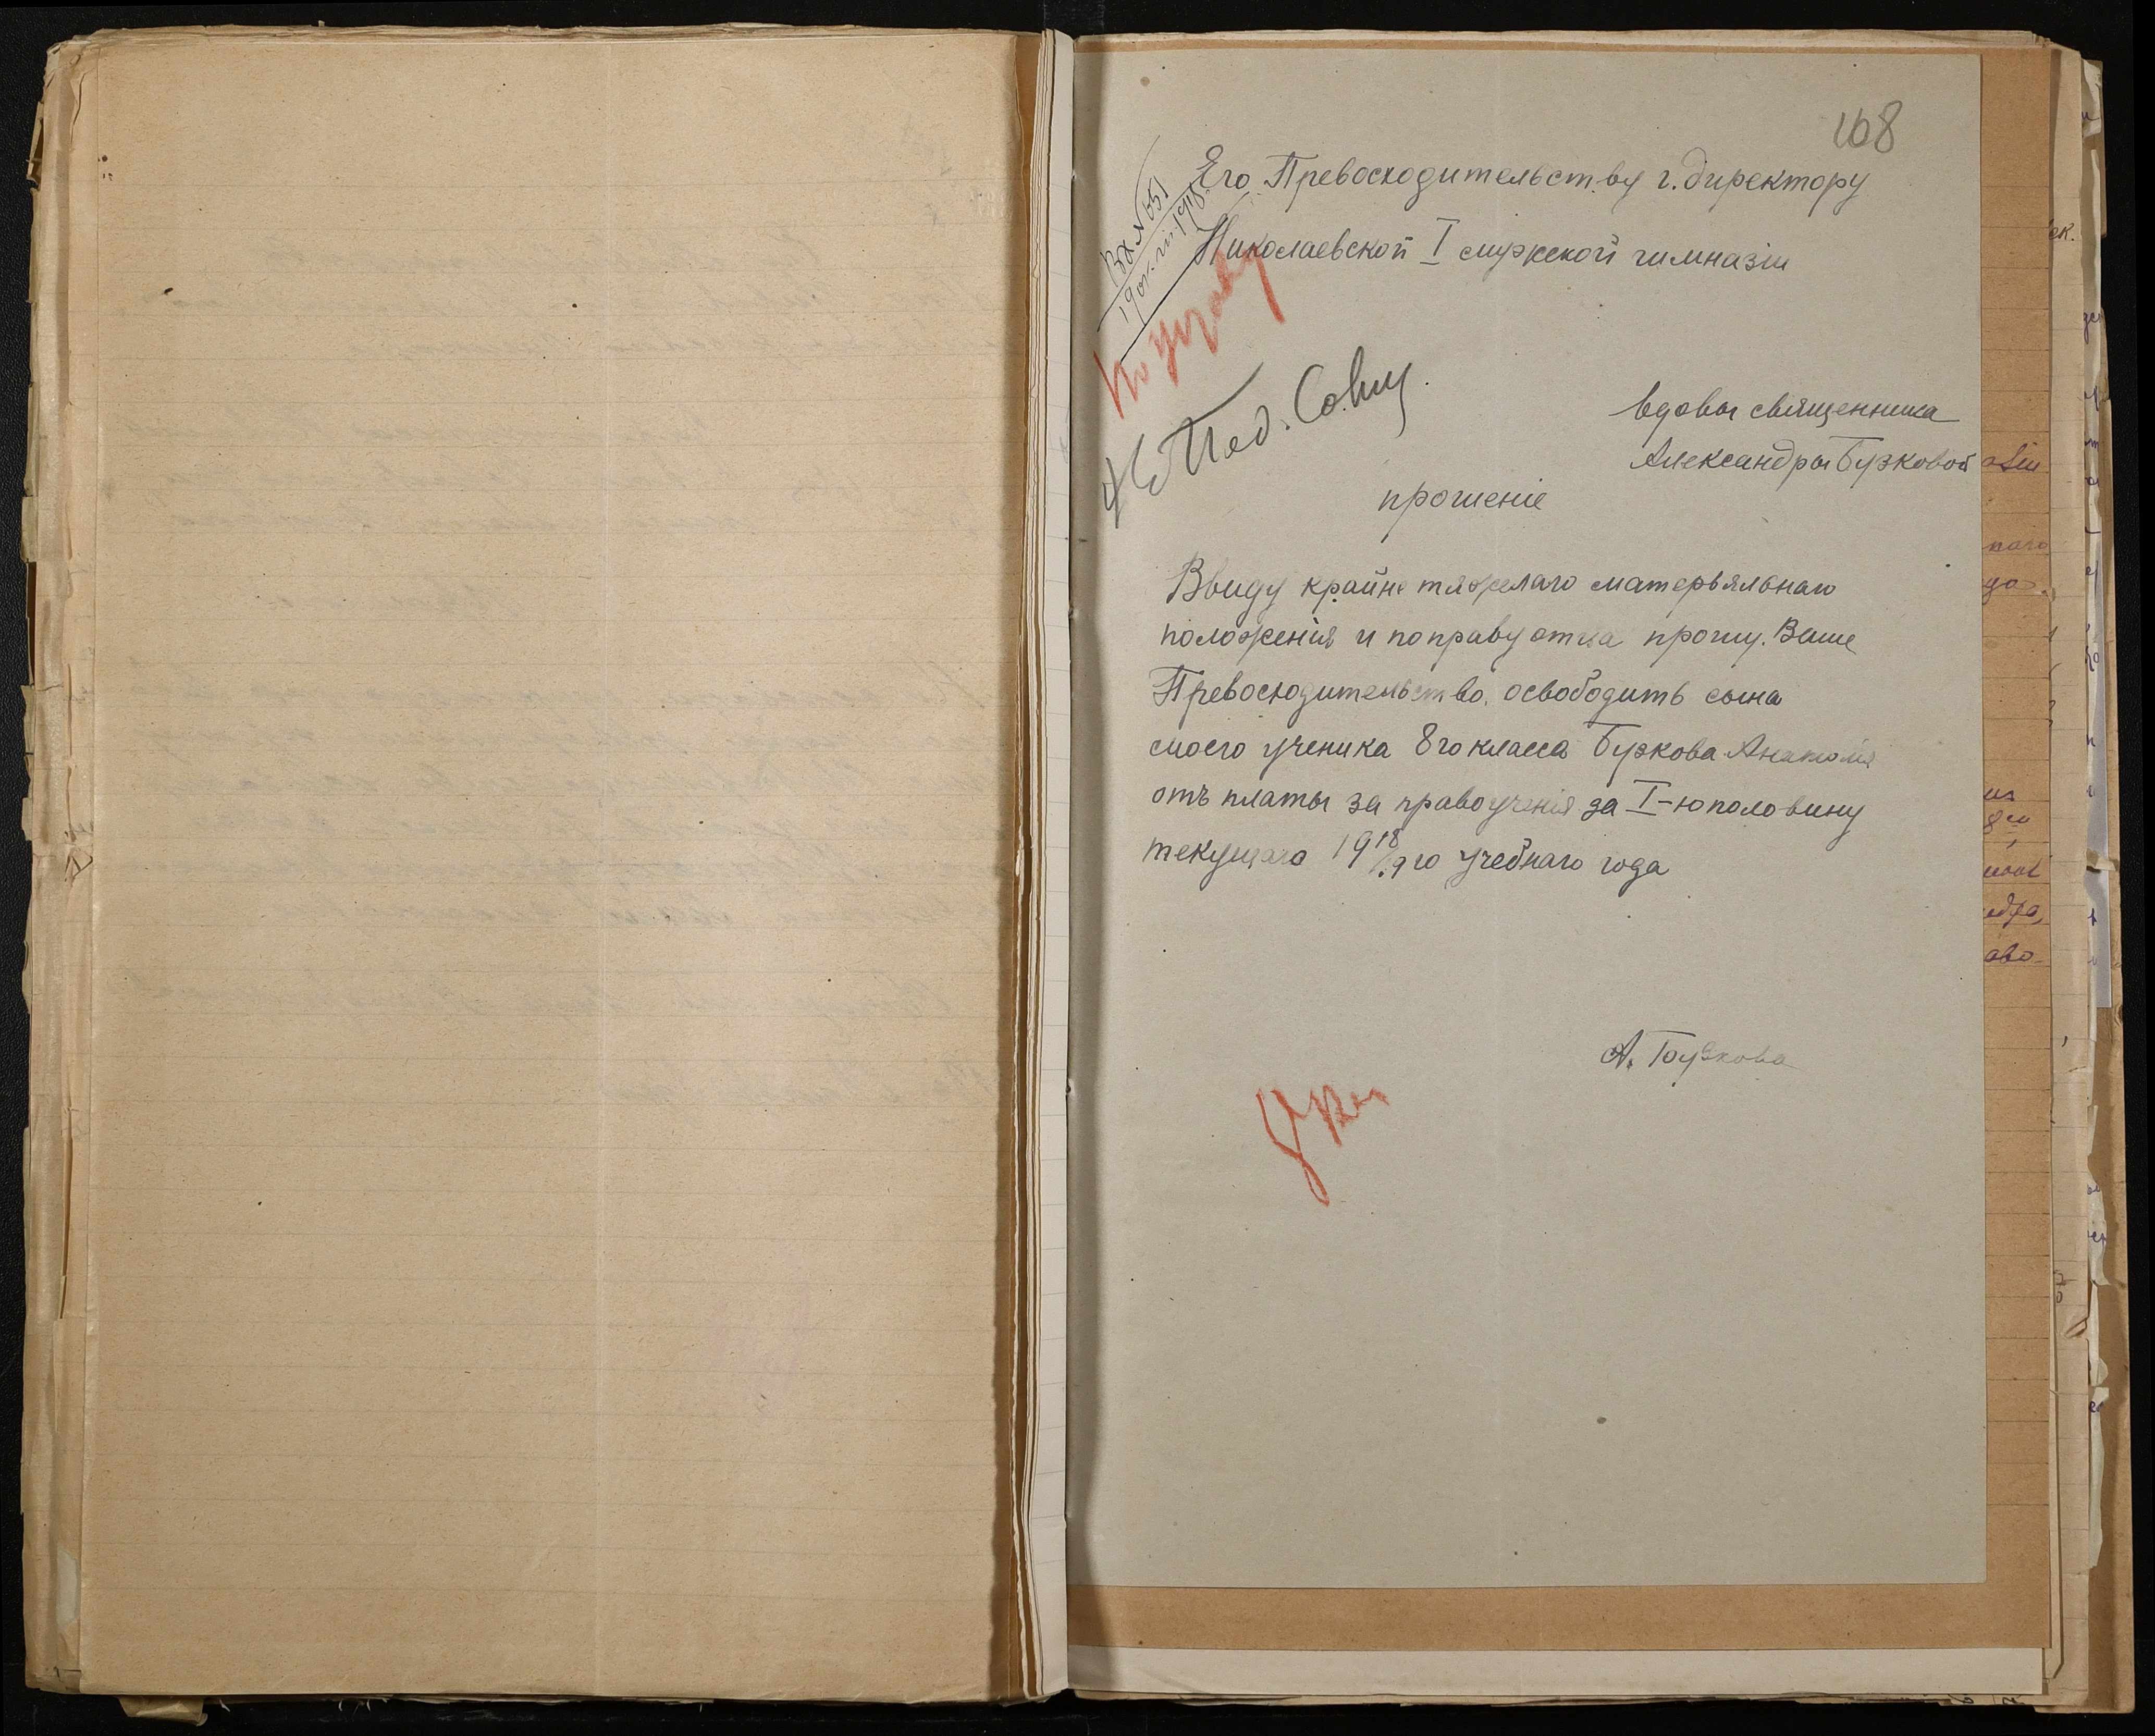 168
Его Превосходительству г. директору
Николаевской I мужской гимназіи
Вх №
По уставу
Пед. Сов.
вдовы священника
Александры Бужковой
прошеніе
Ввиду крайне тяжелаго матерьяльнаго
положенія и по праву отца прошу. Ваше
Превосходительство. освободить сына
моего ученика 8го класса Бужкова Анатолія
отъ платы за правоученія за I-ю половину
текущаго 1918/19 го учебнаго года
А. Бужкова